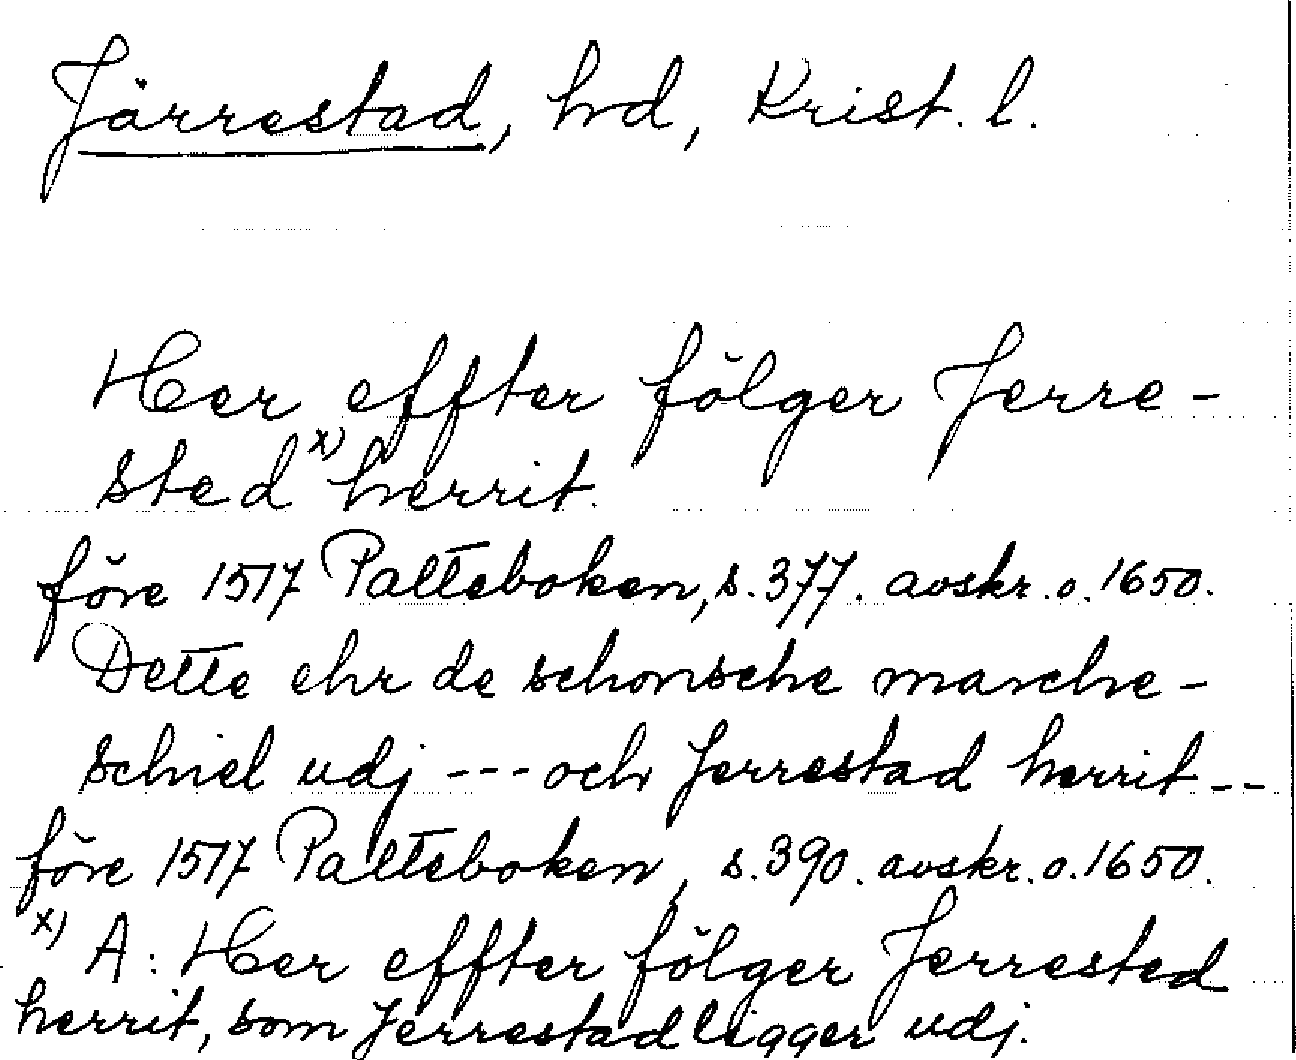 Järrestad, hd, Krist. l.
Her effter fölger Jerre-
sted x) herrit.
före 1517 Palteboken, s. 377. avskr. o. 1650.
Dette ehr de schonsche marche-
schiel udj --- och Jerrestad herrit --
före 1517 Palteboken, s. 390. avskr. o. 1650.
x) A: Her effter fölger Jerrested
herrit, som Jerrestad ligger udj.